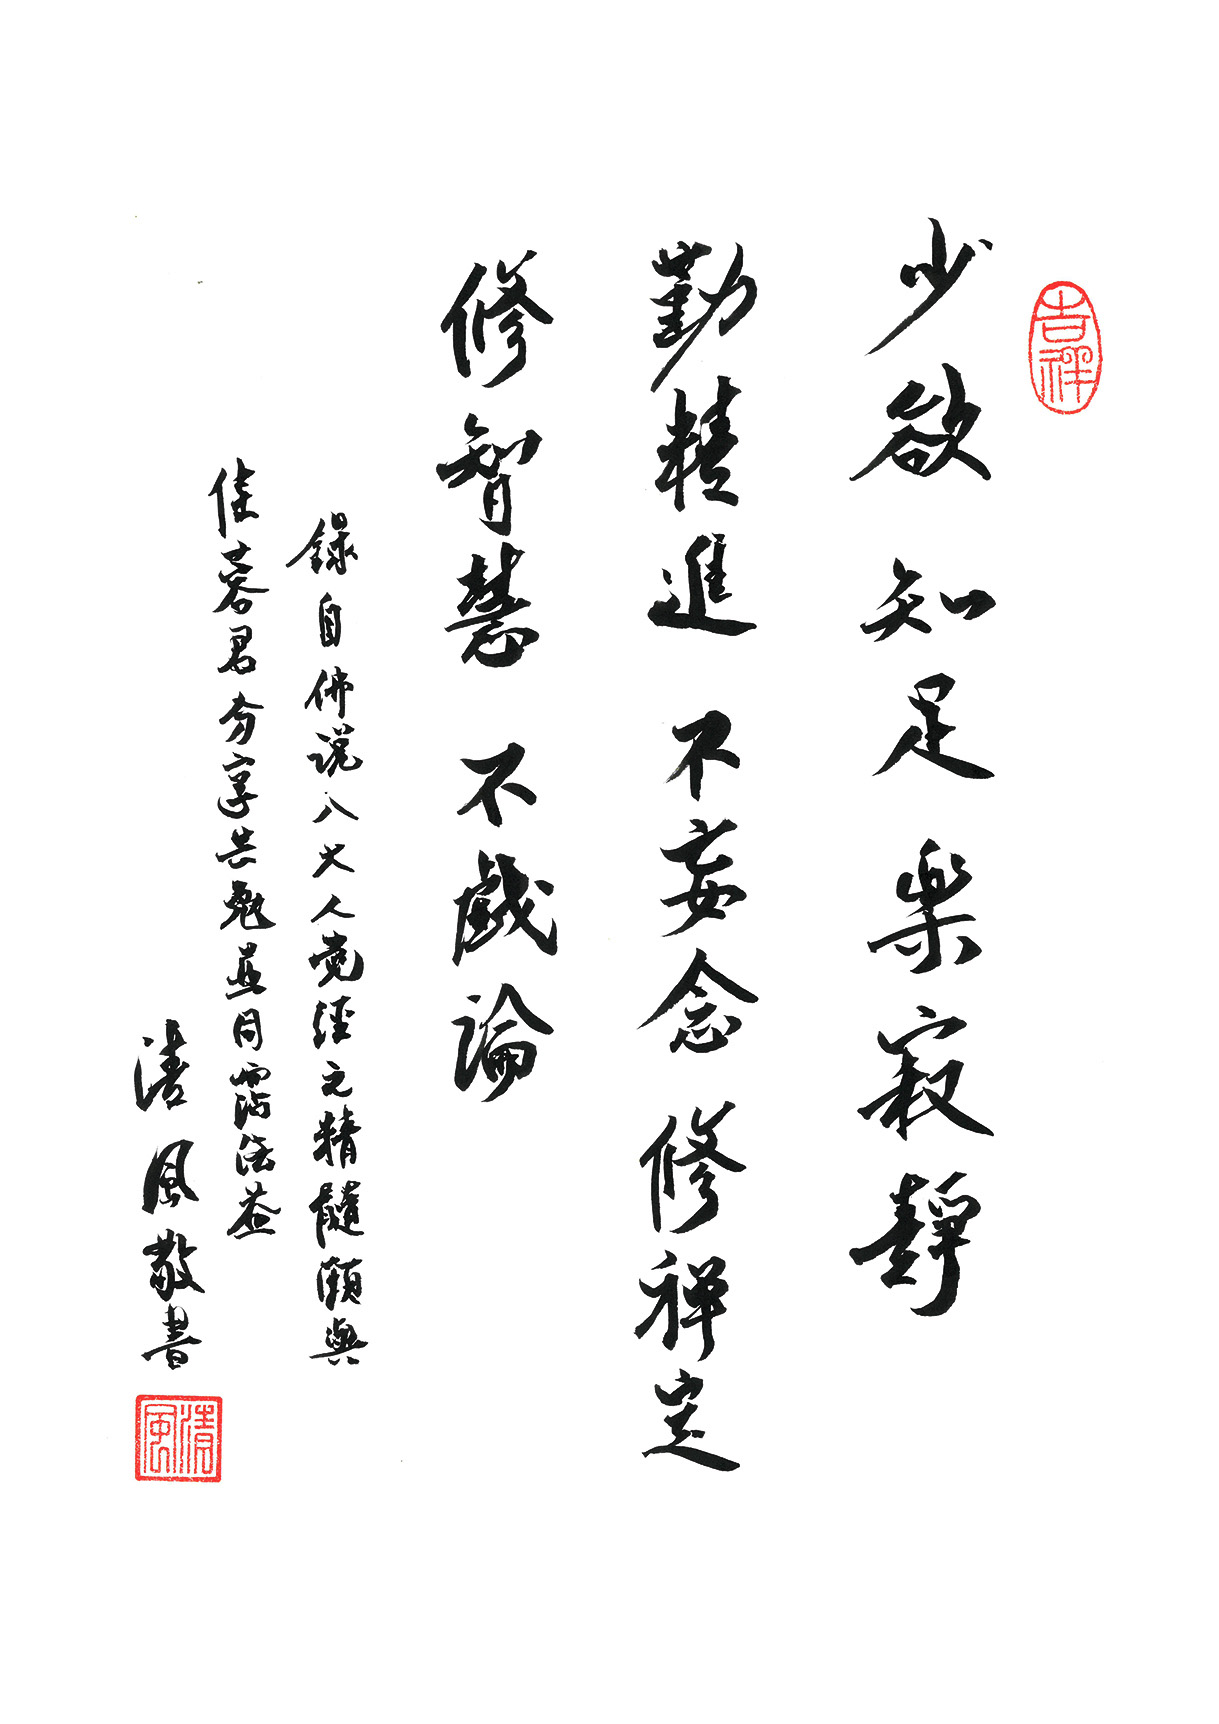 吉祥
少欲 知足 樂寂靜
勤精進 不妄念 修禪定
修智慧 不戲論
錄自佛說八大人覺經之精髓願與
佳蓉君分享共勉並同霑法益
清風敬書
清風